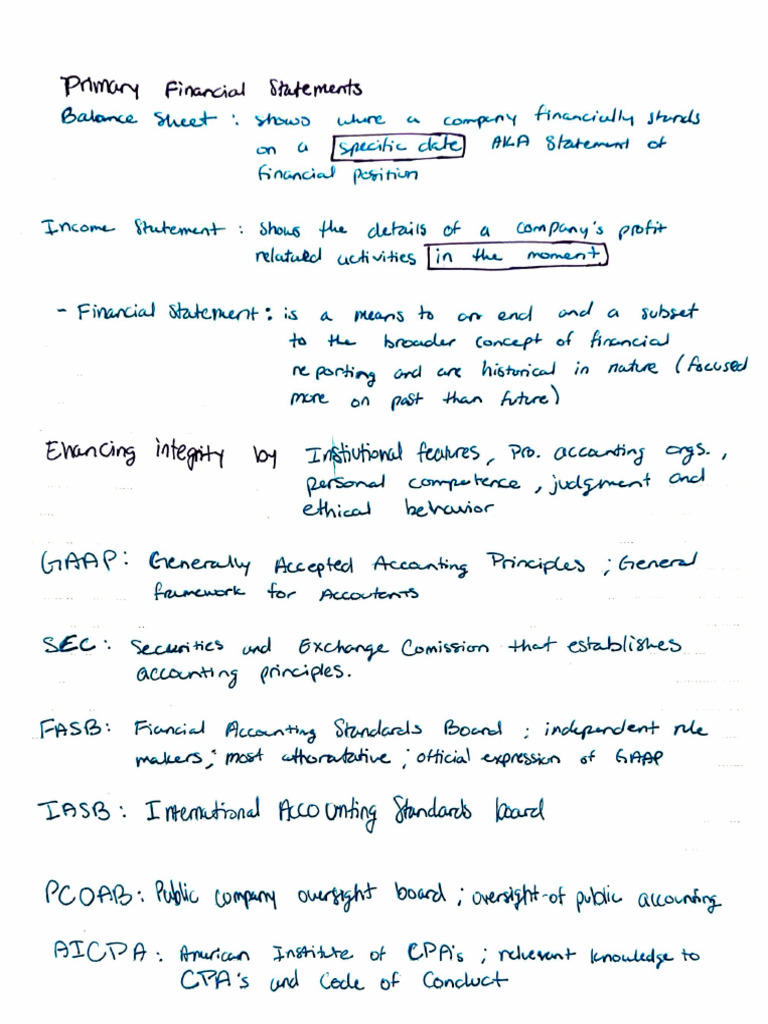 Primary Financial Statements
Balance Sheet : shows where a company financially stands
on a specific date AKA Statement of
financial position
Income Statement : shows the details of a company's profit
relatated activities in the moment
- Financial Statement : is a means to an end and a subset
to the broader concept of financial
reporting and are historical in nature (focused
more on past than future)
Ehancing integrity by Instiutional features, pro. accounting orgs.,
personal competence, judgment and
ethical behavior
GAAP : Generally Accepted Accounting Principles ; General
framework for Accoutents
SEC : Securities and Exchange Comission that establishes
accounting principles.
FASB : Fiancial Accounting Standards Board ; independent rule
makers ; most athoratative ; official expression of GAAP
IASB : International Accounting Standards board
PCOAB : Public company oversight board ; oversight of public accounting
AICPA : American Institute of CPA's ; relevent knowledge to
CPA's and Code of Conduct